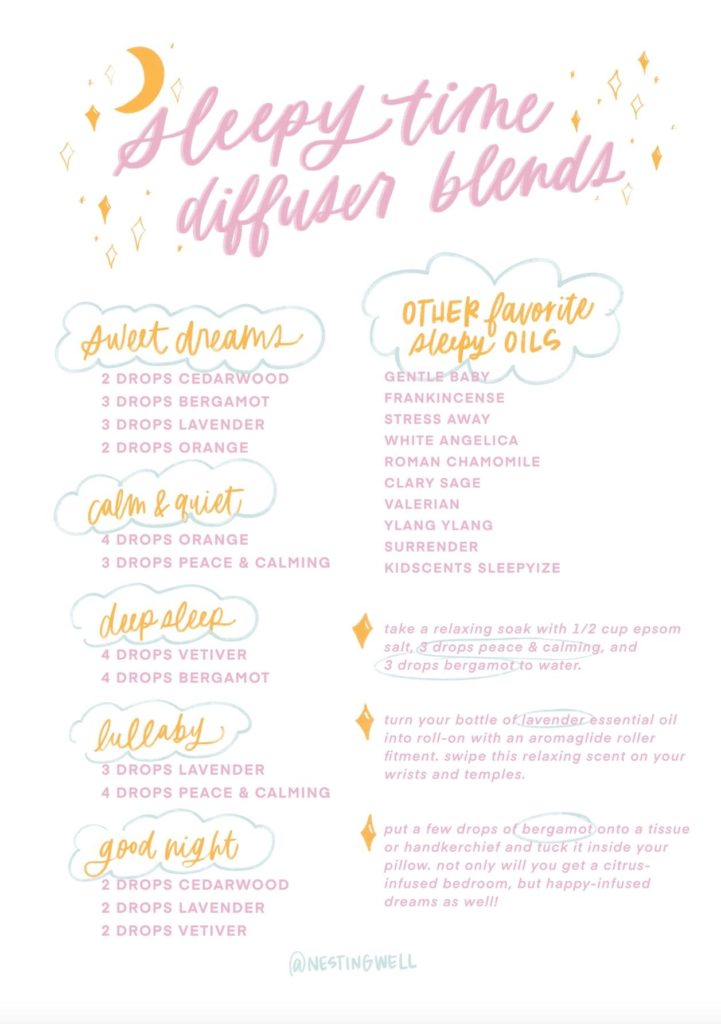 sleepy time
diffuser blends
sweet dreams
2 DROPS CEDARWOOD
3 DROPS BERGAMOT
3 DROPS LAVENDER
2 DROPS ORANGE
calm & quiet
4 DROPS ORANGE
3 DROPS PEACE & CALMING
deep sleep
4 DROPS VETIVER
4 DROPS BERGAMOT
lullaby
3 DROPS LAVENDER
4 DROPS PEACE & CALMING
good night
2 DROPS CEDARWOOD
2 DROPS LAVENDER
2 DROPS VETIVER
OTHER favorite
sleepy OILS
GENTLE BABY
FRANKINCENSE
STRESS AWAY
WHITE ANGELICA
ROMAN CHAMOMILE
CLARY SAGE
VALERIAN
YLANG YLANG
SURRENDER
KIDSCENTS SLEEPYIZE
take a relaxing soak with 1/2 cup epsom
salt, 3 drops peace & calming, and
3 drops bergamot to water.
turn your bottle of lavender essential oil
into roll-on with an aromaglide roller
fitment. swipe this relaxing scent on your
wrists and temples.
put a few drops of bergamot onto a tissue
or handkerchief and tuck it inside your
pillow. not only will you get a citrus-
infused bedroom, but happy-infused
dreams as well!
@NESTINGWELL